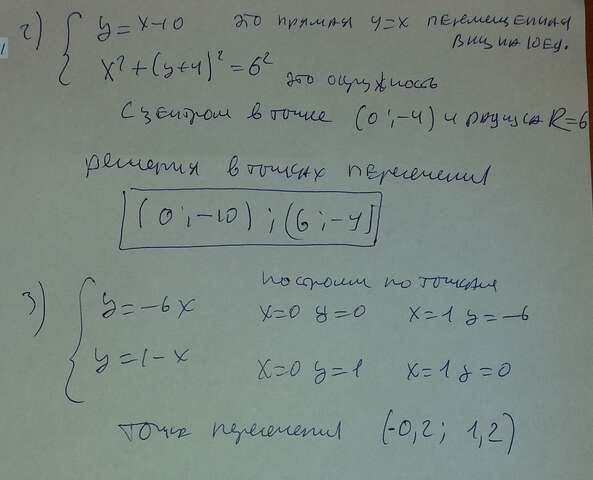 2) { y = x-10 это прямая y=x перемещенная
вниз на 10 ед.
x² + (y+4)² = 6² это окружность
с центром в точке (0;-4) и радиуса R=6
решения в точках пересечения
(0;-10) ; (6;-4)
3) { построим по точкам
y = -6x x=0 y=0 x=1 y=-6
y = 1-x x=0 y=1 x=1 y=0
точка пересечения (-0,2; 1,2)